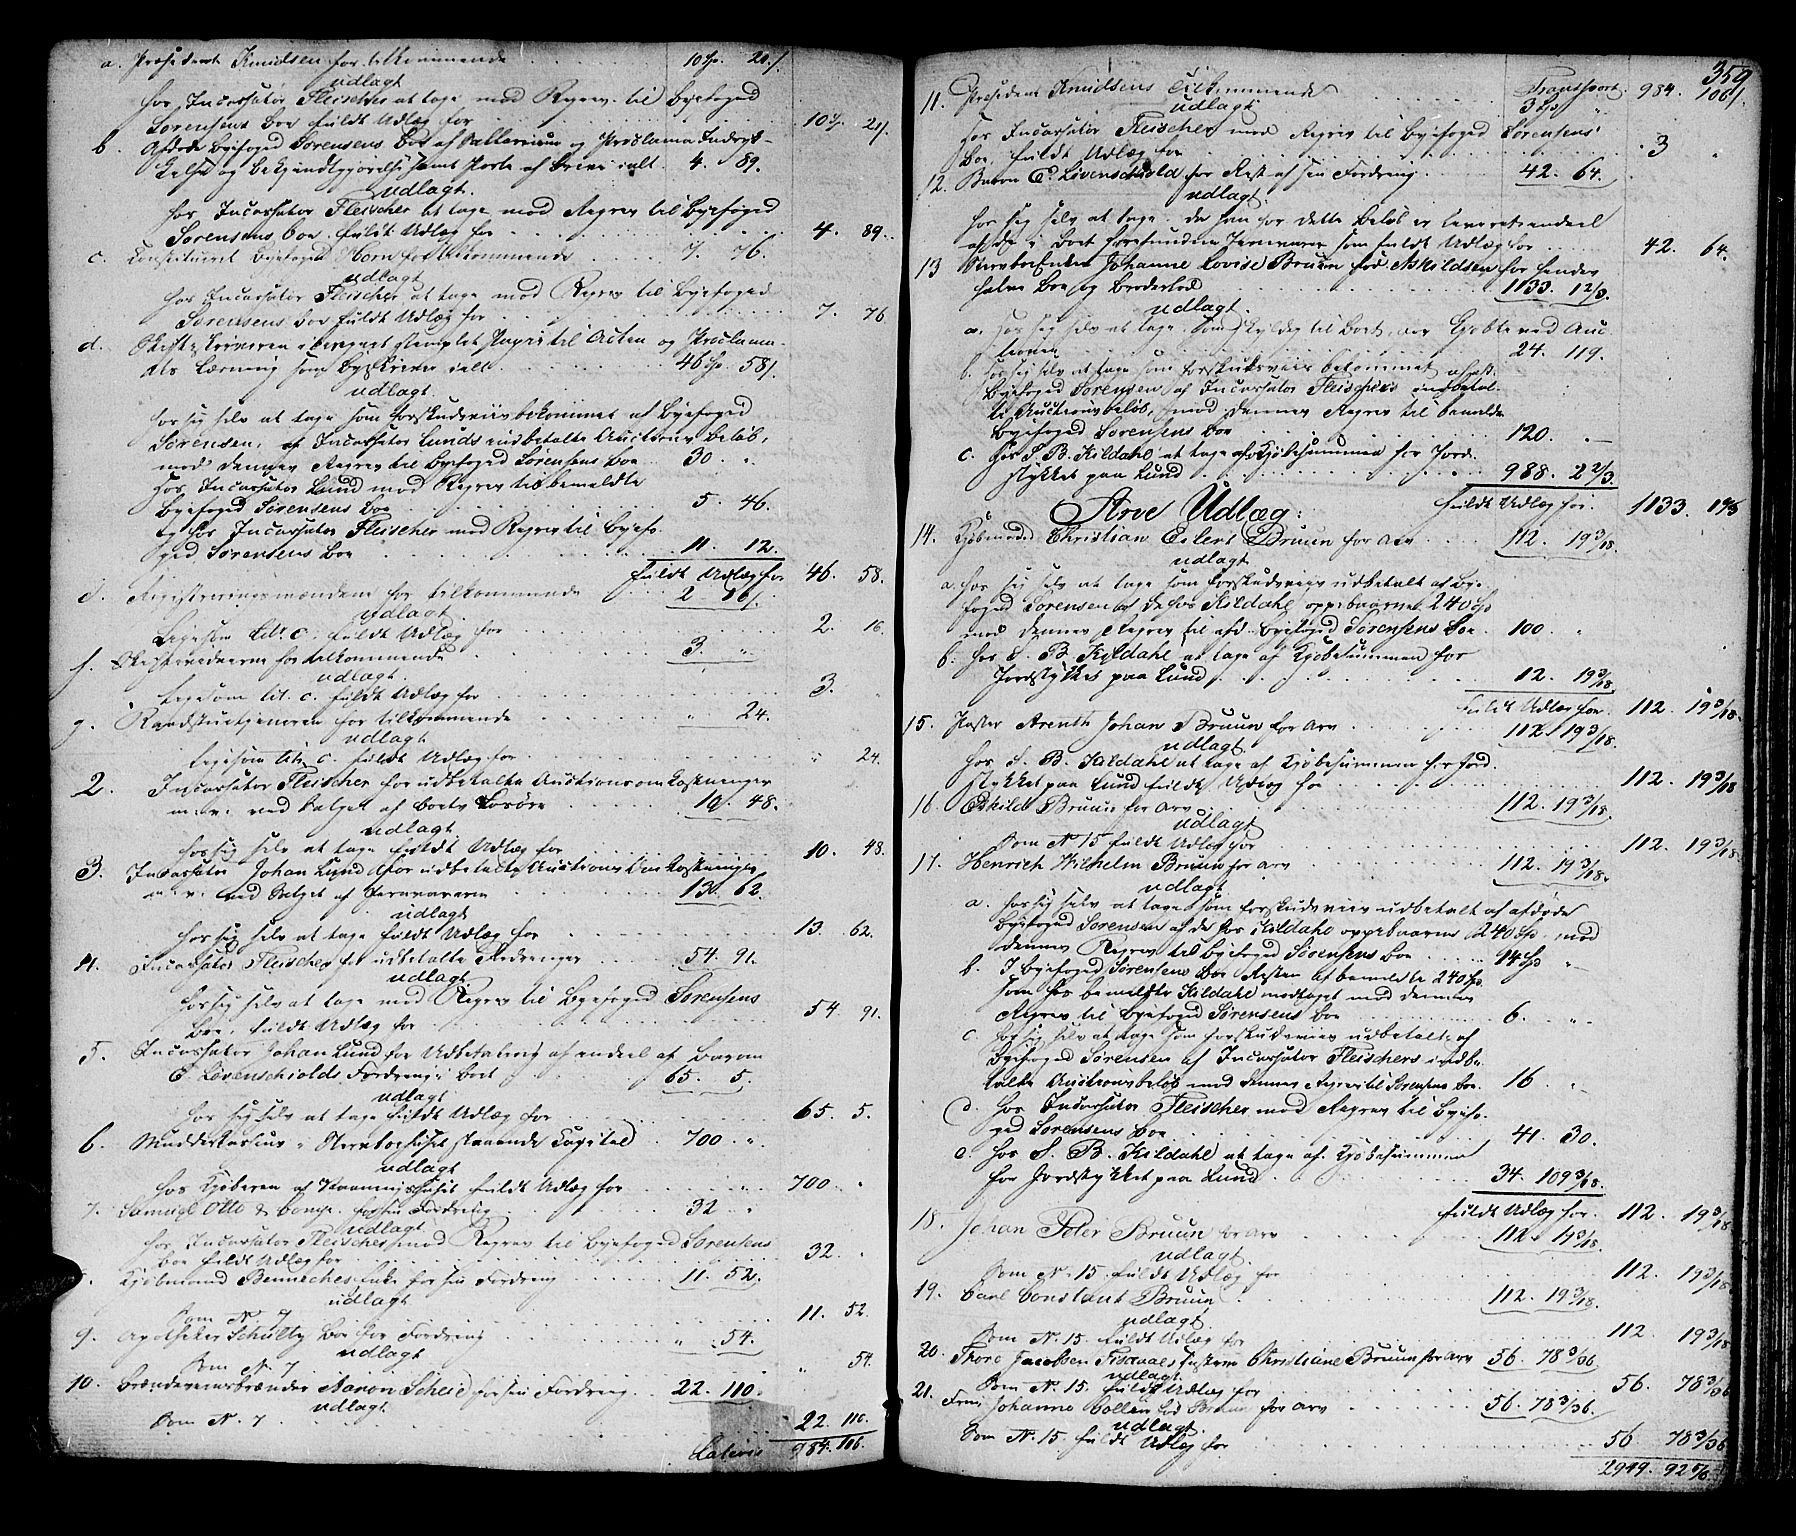 a. Præsident Knudsen for tilkommende 10 Sp. 21 ß
udlagt
hos Incassator Fleischer at tage med Regres til Byefoged
Sørensens Boe fuldt Udlæg for 10 Sp. 21 ß
b. Afdøde Byefoged Sørensens Boe af
og Bekjendtgjørelse samt Porto af Breve ialt 4. 89.
udlagt.
hos Incassator Fleischer at tage med Regres til Byefoged
Sørensens Boe fuldt Udlæg for 4. 89.
c. Constitueret Byefoged Horn for tilkommende 7. 76.
udlagt
hos Incassator Fleischer at tage med Regres til Byefoged
Sørensens Boe fuldt Udlæg for 7. 76
d. Skifteskriveren beregnet stemplet Papir til Acten og Proclama
dets Læsning som Byskriver ialt 46 Sp. 58 ß
udlagt
hos sig selv at tage som forskudsviis bekommet af Byefoged
Sørensen, af Incassator Lunds indbetalte Auctions Beløb,
med dennes Regres til Byefoged Sørensens Boe 30. "
hos Incassator Lund med Regres til bemeldte
Byefoged Sørensens Boe 5. 46.
og hos Incassator Fleischer med Regres til Byefo-
ged Sørensens Boe 11. 12.
fuldt Udlæg for 46. 58.
e. Registreringsmændene for tilkommende 2. 16
udlagt
Ligesom Litr c. fuldt Udlæg for 2. 16
f. for tilkommende 3. "
udlagt
Ligesom lit. c. fuldt Udlæg for 3. "
g. Raadstuetjeneren for tilkommende " 24.
udlagt
ligesom lit. c. fuldt Udlæg for " 24.
2. Incassator Fleischer for udbetalte Auctionsomkostninger
m. v. ved Salget af Boets Løsøre 10. 48.
udlagt
hos sig selv at tage fuldt Udlæg for 10. 48.
3. Incassator Johan Lund for udbetalte Auctions Omkostninger
m. v. ved Salget af Jernvarene 13. 62.
udlagt
hos sig selv at tage fuldt Udlæg for 13. 62.
4. Incassator Fleischer for udbetalte Fordringer 54. 91.
udlagt
hos sig selv at tage med Regres til Byefoged Sørensens
Boe, fuldt Udlæg for 54. 91.
5. Incassator Johan Lund for Udbetaling af endeel af Baron
E. Løvenschiolds Fordring i Boet 65. 5.
udlagt
hos sig selv at tage fuldt Udlæg for 65. 5.
6. Capital 700 "
udlagt
hos Kjøberen af fuldt Udlæg for 700 "
7. Samuel Otto & Comp. for sin Fordring 32 "
udlagt
hos Incassator Fleischer med Regres til Byefoged Sørensens
Boe fuldt Udlæg for 32. "
Kjøbmand Benneches Enke for sin Fordring 11. 52.
udlagt
Som N. 7 11. 52.
9. Apotheker Schultz Boe for Fordring " 54.
udlagt
Som N. 7 " 54.
10. Brændeviinsbrænder Aaron Scheie for sin Fordring 22. 110.
udlagt
Som N. 7 22. 110.
Lateris 984. 106.
359
11. Præsident Knudsens tilkommende Transport 984. 106 ß
udlagt 3 Sp "
hos Incassator Fleischer med Regres til Byefoged Sørensens
Boe, fuldt Udlæg for 3 "
12. Baron E. Løvenschiold for Rest af sin Fordring 42. 64.
udlagt
hos sig selv at tage, da han for dette Beløb er leveret endeel
af de i Boet forefundne Jernvarer som fuldt Udlæg for 42. 64.
13 Johanne Lovise Bruun født Askildsen for hendes
halve Boe og Broderlod 1133. 1 2/3.
udlagt.
a. hos sig selv at tage, som skyldig til Boet, for Kjøbte ved Auc
tionen 24. 119.
b. hos sig selv at tage som forskudsviis bekommet af
Byefoged Sørensen af Incassator Fleischers indbetal-
te Auctionsbeløb, med dennes Regres til bemeldte
Byefoged Sørensens Boe 120. "
c. hos S. B. Kildahl at tage af Kjøbesummen for Jord-
stykket paa Lund 988. 2 2/3.
fuldt Udlæg for 1133. 1 2/3
Arve Udlæg:
14. Kjøbmand Christian Eilert Bruun for Arv 112. 19 3/18.
udlagt
a. hos sig selv at tage som forskudsviis udbetalt af Bye-
foged Sørensen af de hos Kildahl oppebaarne 240 Sp
med dennes Regres til afd. Byefoged Sørensens Boe 100. "
b. hos S. B. Kildahl at tage af Kjøbesummen for
Jordstykket paa Lund 12. 19 3/18.
Fuldt Udlæg for 112. 19 3/18.
15. Arenth Johan Bruun for Arv 112. 19 3/18.
udlagt
hos S. B. Kildahl at tage af Kjøbesummen for Jord-
stykket paa Lund fuldt Udlæg for 112. 19 3/18
16. Eskild Bruun for Arv 112. 19 3/18.
udlagt
Som N. 15 fuldt Udlæg for 112. 19 3/18.
17. Henrich Wilhelm Bruun for Arv 112. 19 3/18.
udlagt
a. hos sig selv at tage som forskudsviis udbetalt af afdøde
Byefoged Sørensen af de hos Kildahl oppebaarne 240 Sp. med
dennes Regres til Byefoged Sørensens Boe 14 Sp "
b. I Byefoged Sørensens Boe Resten af bemeldte 240 Sp.
som hos bemeldte Kildahl modtaget med dennes
Regres til Byefoged Sørensens Boe 6. "
c. hos sig selv at tage som forskudsviis udbetalt af
Byefoged Sørensen af Incassator Fleischers indbe-
talte Auctionsbeløb med dennes Regres til Sørensens Boe. 16 "
d. hos Incassator Fleischer med Regres til Byefo-
ged Sørensens Boe 41. 30.
e. hos S. B. Kildahl at tage af Kjøbesummen
for Jordstykket paa Lund 34. 109 3/18.
fuldt Udlæg for 112. 19 3/18
18. Johan Peter Bruun for Arv 112. 19 3/18.
udlagt
Som N. 15 fuldt Udlæg for 112. 19 3/18
19. Carl Constant Bruun 112. 19 3/18.
udlagt
Som N. 15 fuldt Udlæg for 112. 19 3/18
20. Thore Jacobsen Hustrue Christiane Bruun for Arv 56. 78 3/36
udlagt
Som N. 15. fuldt Udlæg for 56. 78 3/36
21. Johanne født Bruun for Arv 56. 78 3/36.
udlagt
Som N. 15 fuldt Udlæg for 56 78 3/36
2949. 92 5/6